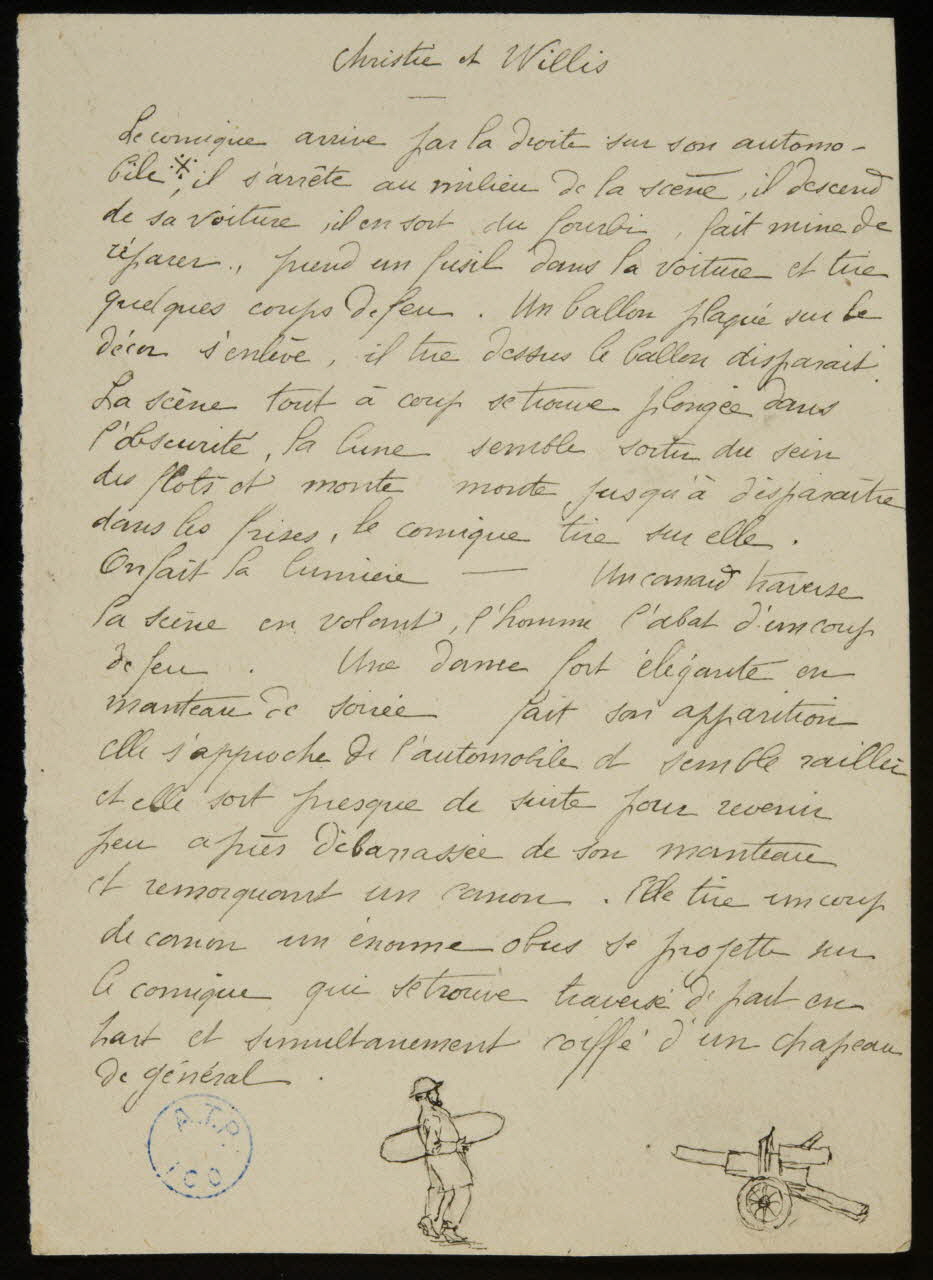 Christie et Willis
Le comique arrive par la droite sur son automo-
bile *, il s'arrête au milieu de la scène, il descend
de sa voiture, il en sort du fourbi, fait mine de
réparer., prend un fusil dans la voiture et tire
quelques coups de feu. Un ballon plaqué sur le
décor s'enlève, il tire dessus le ballon disparait.
La scène tout à coup se trouve plongée dans
l'obscurité, la lune semble sortir du sein
des flots et monte monte jusqu'à disparaître
dans les frises, le comique tire sur elle.
On fait la lumière — Un canard traverse
la scène en volant, l'homme l'abat d'un coup
de feu. Une dame fort élégante en
manteau de soirée fait son apparition
elle s'approche de l'automobile et semble railler
et elle sort presque de suite pour revenir
peu après débarrassée de son manteau
et remorquant un canon. Elle tire un coup
de canon un énorme obus se projette sur
le comique qui se trouve traversé de part en
part et simultanement coiffé d'un chapeau
de général.
A.T.P.
ICO